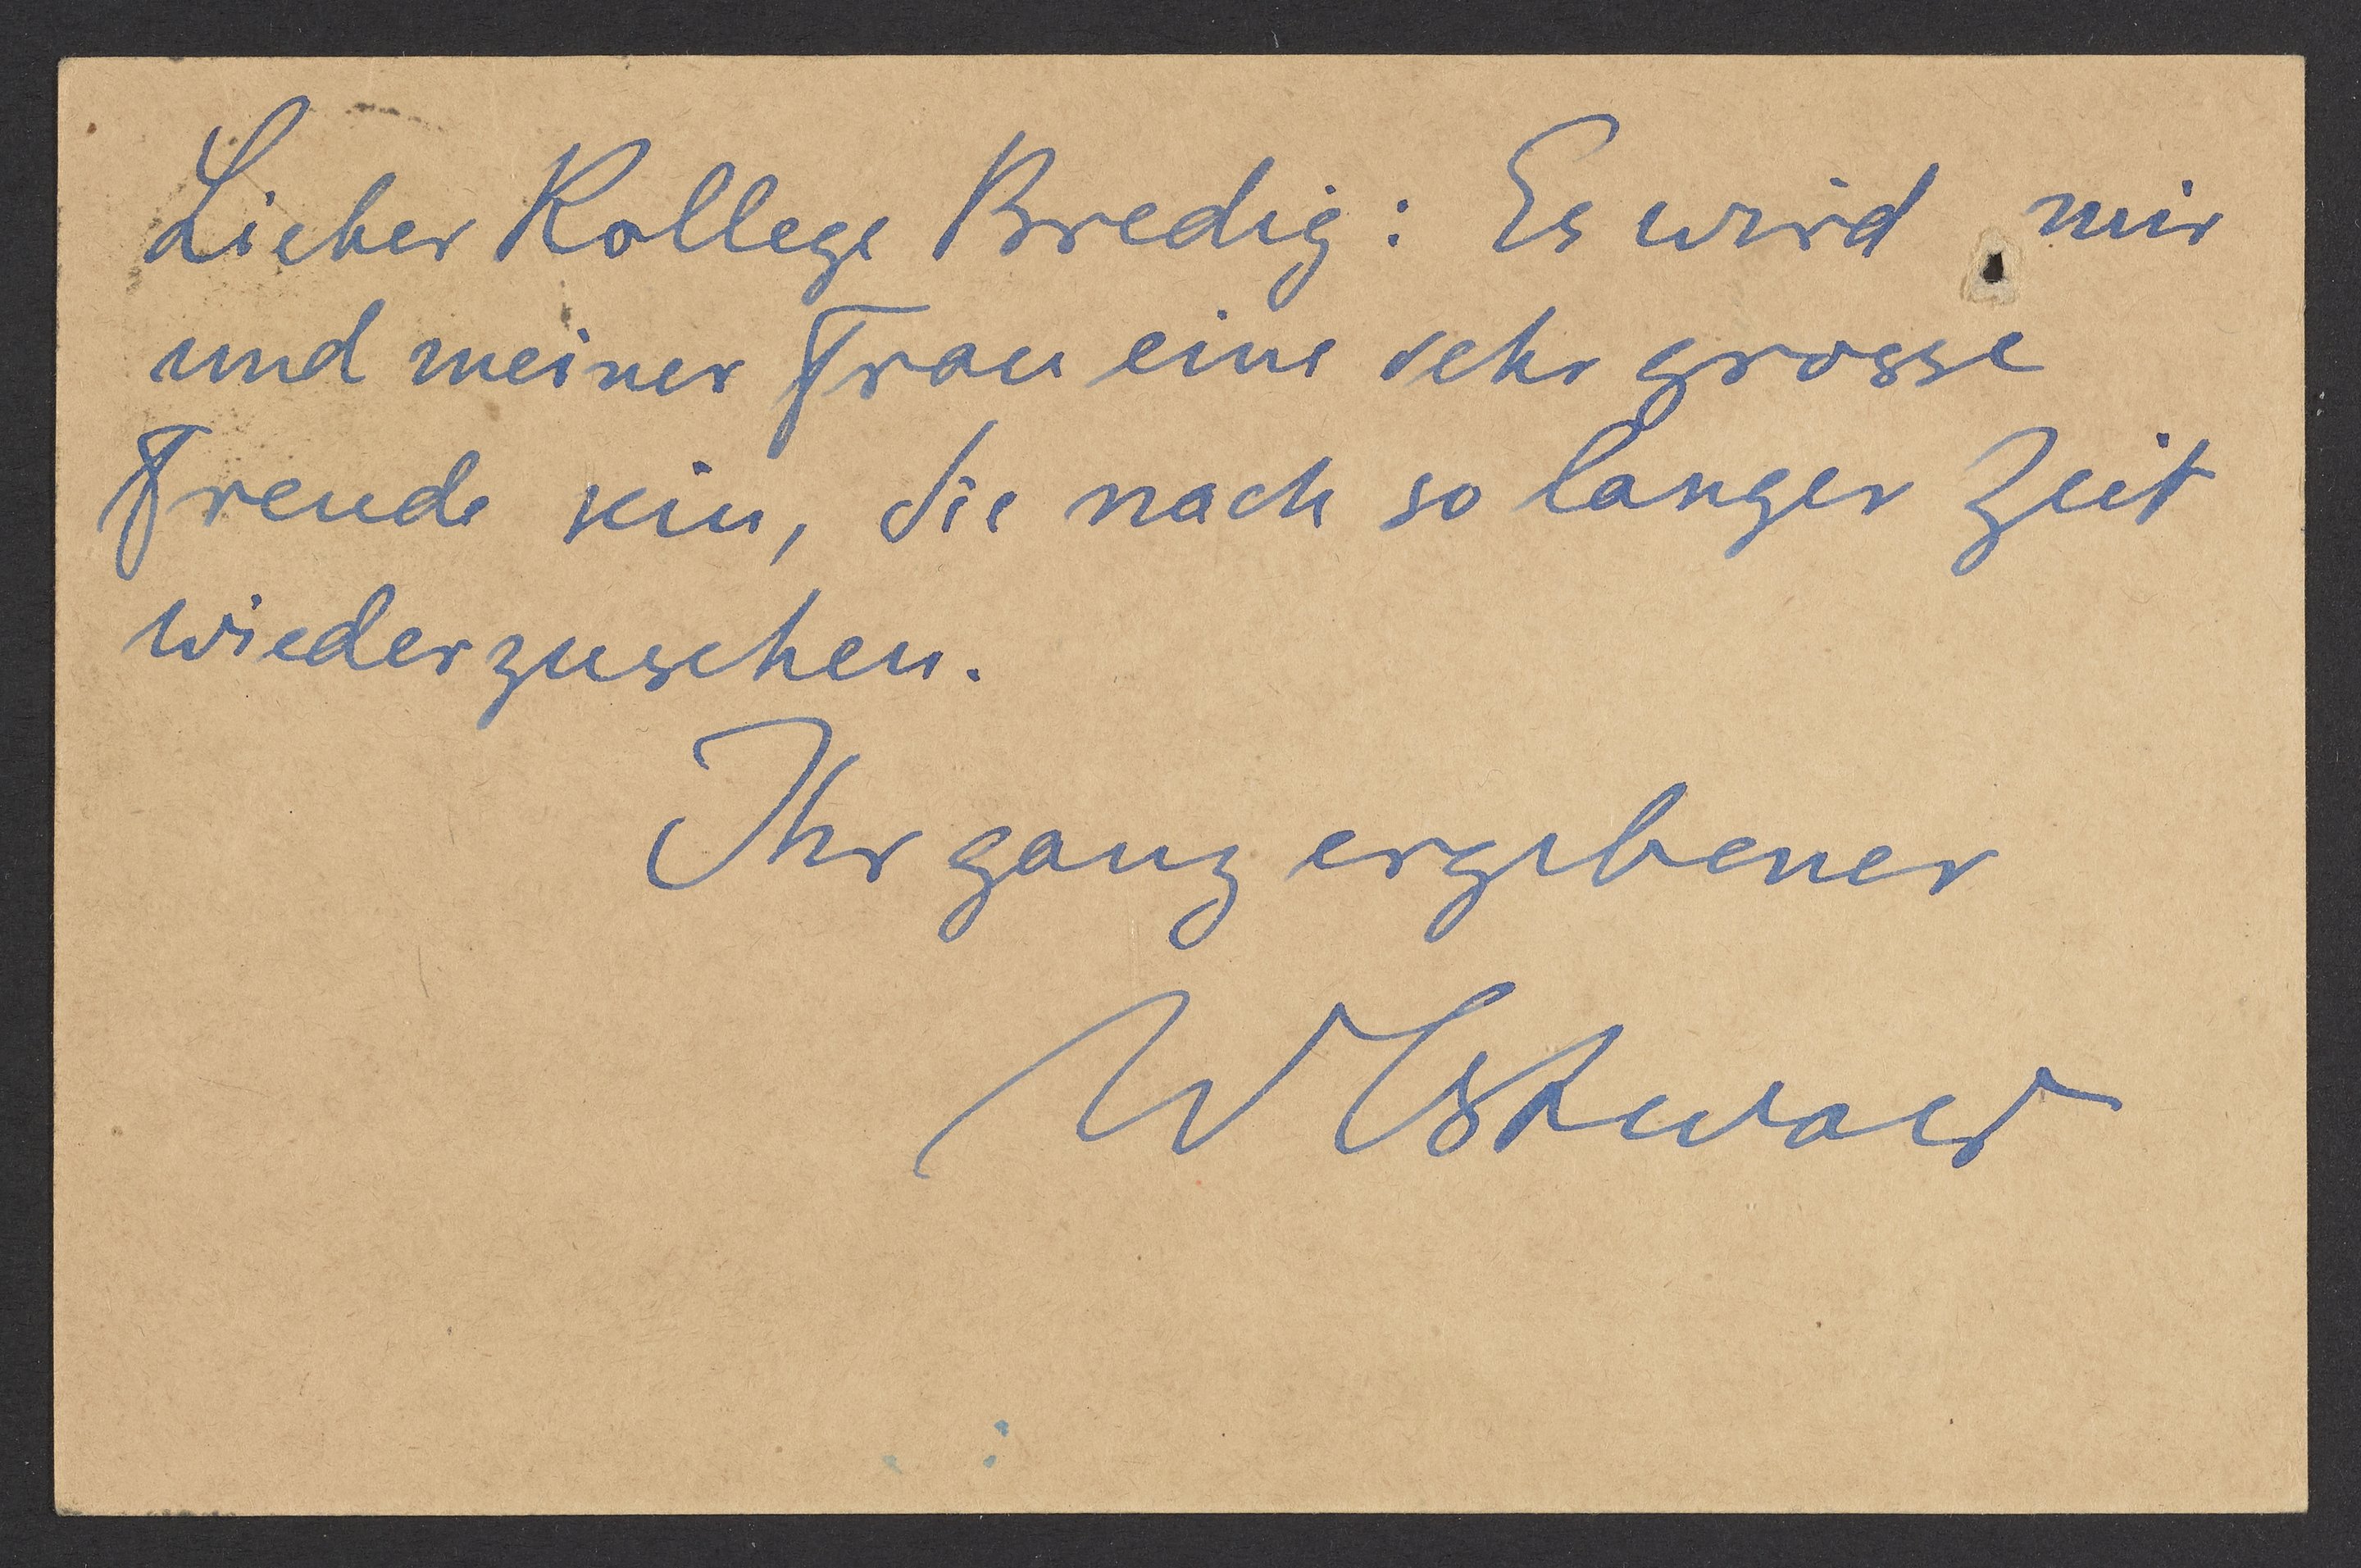 Lieber Kollege Bredig: Es wird mir
und meiner Frau eine sehr grosse
Freude sein, Sie nach so langer Zeit
wiederzusehen.
Ihr ganz ergebener
W Ostwald